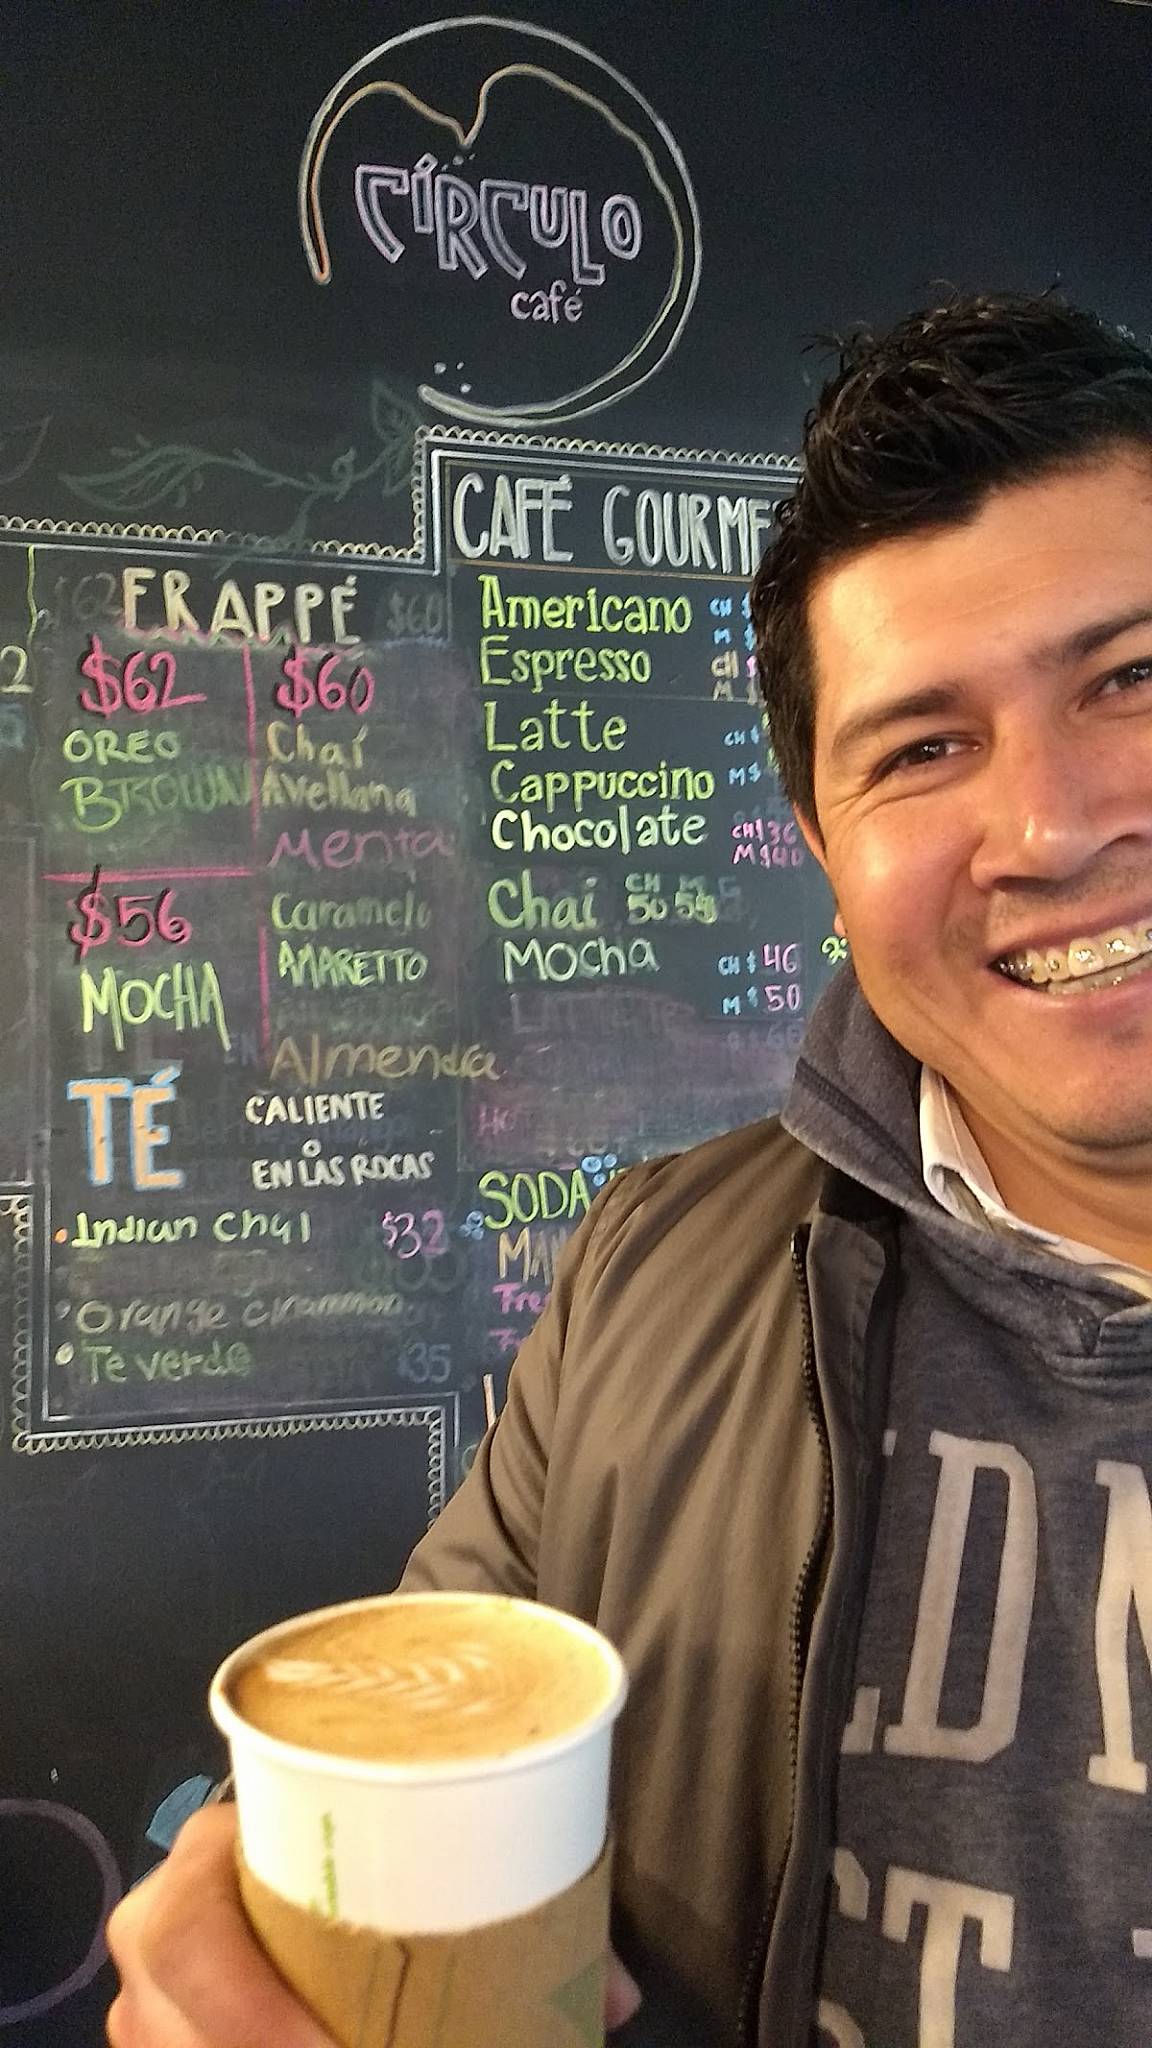 CÍRCULO
café
FRAPPÉ
$62 $60
OREO Chaí
BROWN Avellana
Menta
$56 Caramelo
MOCHA AMARETTO
Almendra
TÉ CALIENTE
O
EN LAS ROCAS
Indian Chai $32
Orange cinammon
Te verde $35
CAFÉ GOURME
Americano CH $
M $
Espresso CH $
M $
Latte CH $
Cappuccino M $
Chocolate CH $36
M $40
Chai CH M
50 55
Mocha CH $ 46
M $ 50
SODA
Fre
LD N
ST